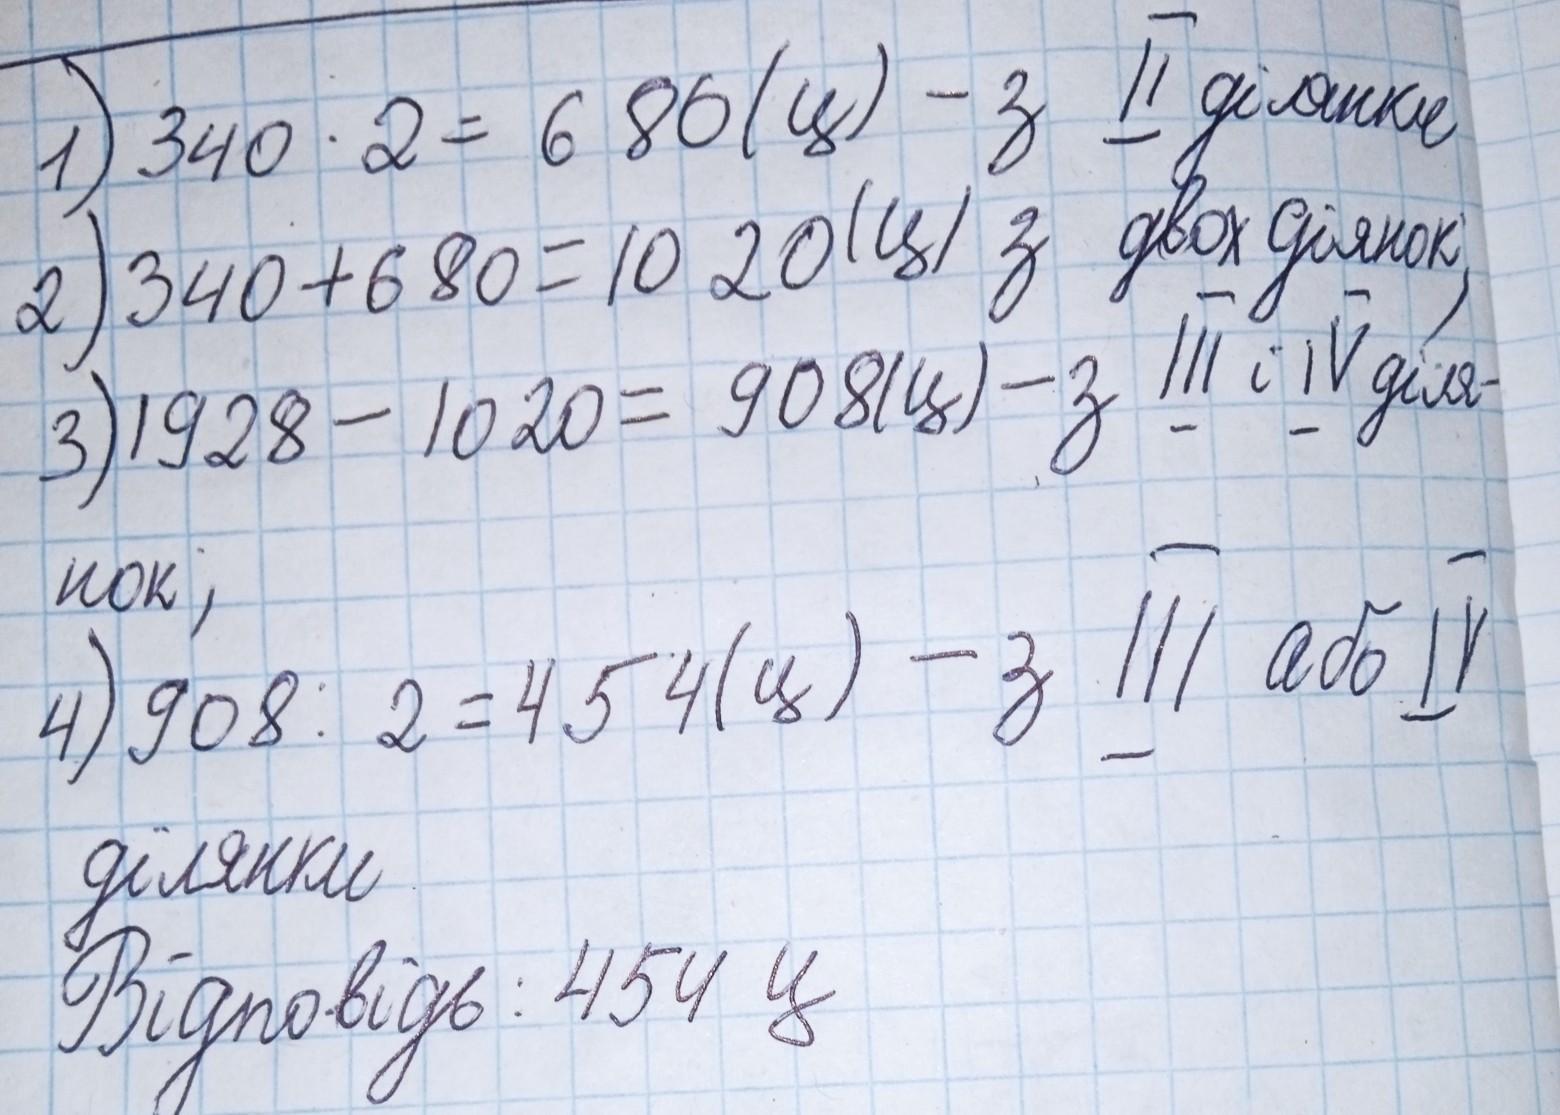 1) 340 · 2 = 680 (ц) - з II ділянки
2) 340 + 680 = 1020 (ц) з двох ділянок,
3) 1928 - 1020 = 908 (ц) - з III і IV діля-
нок;
4) 908 : 2 = 454 (ц) - з III або IV
ділянки
Відповідь: 454 ц